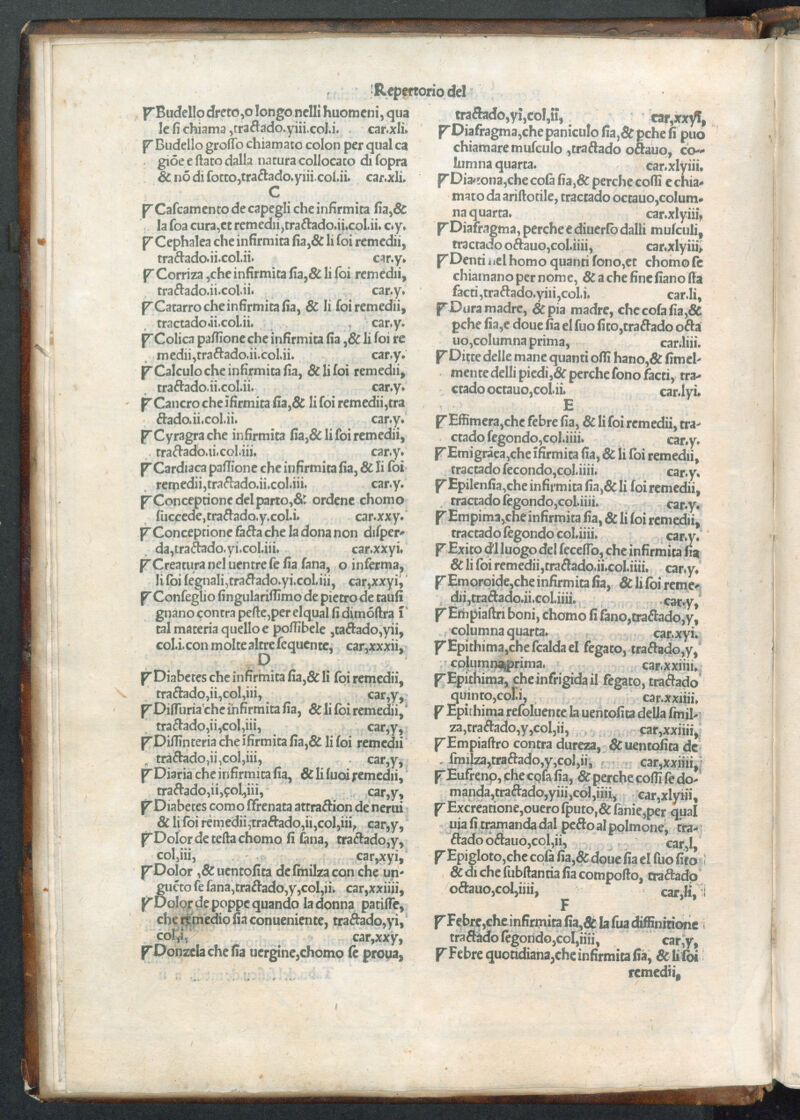 Repertorio del
Budello dreto,o longo nelli huomeni, qua
le ſi chiama ,tractado.yiii.col.i. car.xli.
Budello groſſo chiamato colon per qual ca
giōe e ſtato dalla natura collocato di ſopra
& nō di ſotto,tractado.yiii.col.ii. car.xli.
C
Caſcamento de capegli che infirmita ſia,&
la ſoa cura,et remedii,tractado.ii.col.ii. c.y.
Cephalea che infirmita ſia,& li ſoi remedii,
tractado.ii.col.ii. car.y.
Corriza ,che infirmita ſia,& li ſoi remedii,
tractado.ii.col.ii. car.y.
Catarro che infirmita ſia, & li ſoi remedii,
tractado.ii.col.ii. car.y.
Colica paſſione che infirmita ſia ,& li ſoi re
medii,tractado.ii.col.ii. car.y.
Calculo che infirmita ſia, & li ſoi remedii,
tractado.ii.col.ii. car.y.
Cancro che īfirmita ſia,& li ſoi remedii,tra
ctado.ii.col.ii. car.y.
Cyragra che infirmita ſia,& li ſoi remedii,
tractado.ii.col.iii. car.y.
Cardiaca paſſione che infirmita ſia, & li ſoi
remedii,tractado.ii.col.iii. car.y.
Conceptione del parto,& ordene chomo
ſuccede,tractado.y.col.i. car.xxy.
Conceptione facta che la dona non diſper-
da,tractado.yi.col.iii. car.xxyi.
Creatura nel uentre ſe ſia ſana, o inferma,
li ſoi ſegnali,tractado.yi.col.iii, car,xxyi,
Conſeglio ſingulariſſimo de pietro de tauſi
gnano contra peſte,per elqual ſi dimōſtra ī
tal materia quello e poſſibele ,tactado,yii,
col.i.con molte altre ſequente, car,xxxii,
D
Diabetes che infirmita ſia,& li ſoi remedii,
tractado,ii,col,iii, car,y,
Diſſuria che infirmita ſia, & li ſoi remedii,
tractado,ii,col,iii, car,y,
Diſſinteria che īfirmita ſia,& li ſoi remedii
tractado,ii,col,iii, car,y,
Diaria che infirmita ſia, & li ſuoi remedii,
tractado,ii,col,iii, car,y,
Diabetes como ſfrenata attraction de nerui
& li ſoi remedii,tractado,ii,col,iii, car,y,
Dolor de teſta chomo ſi ſana, tractado,y,
col,iii, car,xyi,
Dolor ,& uentoſita de ſmilza con che un-
guēto ſe ſana,tractado,y,col,ii. car,xxiiii,
Dolor de poppe quando la donna patiſſe,
che remedio ſia conueniente, tractado,yi,
col,i, car,xxy,
Donzela che ſia uergine,chomo ſe proua,
tractado,yi,col,ii, car,xxyi,
Diafragma,che paniculo ſia,& pche ſi puo
chiamare muſculo ,tractado octauo, co-
lumna quarta. car.xlyiii.
Diazona,che coſa ſia,& perche coſſi e chia-
mato da ariſtotile, tractado octauo,colum-
na quarta. car.xlyiii,
Diafragma, perche e diuerſo dalli muſculi,
tractado octauo,col.iiii, car.xlyiii.
Denti nel homo quanti ſono,et chomo ſe
chiamano per nome, & a che fine ſiano ſta
facti,tractado.yiii,col.i. car.li,
Dura madre, & pia madre, che coſa ſia,&
pche ſia,e doue ſia el ſuo ſito,tractado octa
uo,columna prima, car.liii.
Ditte delle mane quanti oſſi hano,& ſimel-
mente delli piedi,& perche ſono facti, tra-
ctado octauo,col.ii. car.lyi.
E
Effimera,che febre ſia, & li ſoi remedii, tra-
ctado ſegondo,col.iiii. car.y.
Emigrāca,che īfirmita ſia, & li ſoi remedii,
tractado ſecondo,col.iiii. car.y.
Epilenſia,che infirmita ſia,& li ſoi remedii,
tractado ſegondo,col.iiii. car.y.
Empima,che infirmita ſia, & li ſoi remedii,
tractado ſegondo col.iiii. car.y.
Exito dl luogo del ſeceſſo, che infirmita ſia
& li ſoi remedii,tractado.ii.col.iiii. car.y,
Emoroide,che infirmita ſia, & li ſoi reme-
dii,tractado.ii.col.iiii. car.y,
Empiaſtri boni, chomo ſi fano,tractado,y,
columna quarta. car.xyi.
Epithima,che ſcalda el fegato, tractado,y,
columna prima. car.xxiiii.
Epithima, che infrigida il fegato, tractado
quinto,col.i, car.xxiiii,
Epithima reſoluente la uentoſita della ſmil-
za,tractado,y,col,ii, car,xxiiii,
Empiaſtro contra dureza, & uentoſita de
ſmilza,tractado,y,col,ii, car,xxiiii,
Eufreno, che coſa ſia, & perche coſſi ſe do-
manda,tractado,yiii,col,iiii, car,xlyiii,
Excreatione,ouero ſputo,& ſanie,per qual
uia ſi tramanda dal pecto al polmone, tra-
ctado octauo,col,ii, car,l,
Epigloto,che coſa ſia,& doue ſia el ſuo ſito
& di che ſubſtantia ſia compoſto, tractado
octauo,col,iiii, car,li,
F
Febre,che infirmita ſia,& la ſua diffinitione
tractado ſegondo,col,iiii, car,y,
Febre quotidiana,che infirmita ſia, & li ſoi
remedii,